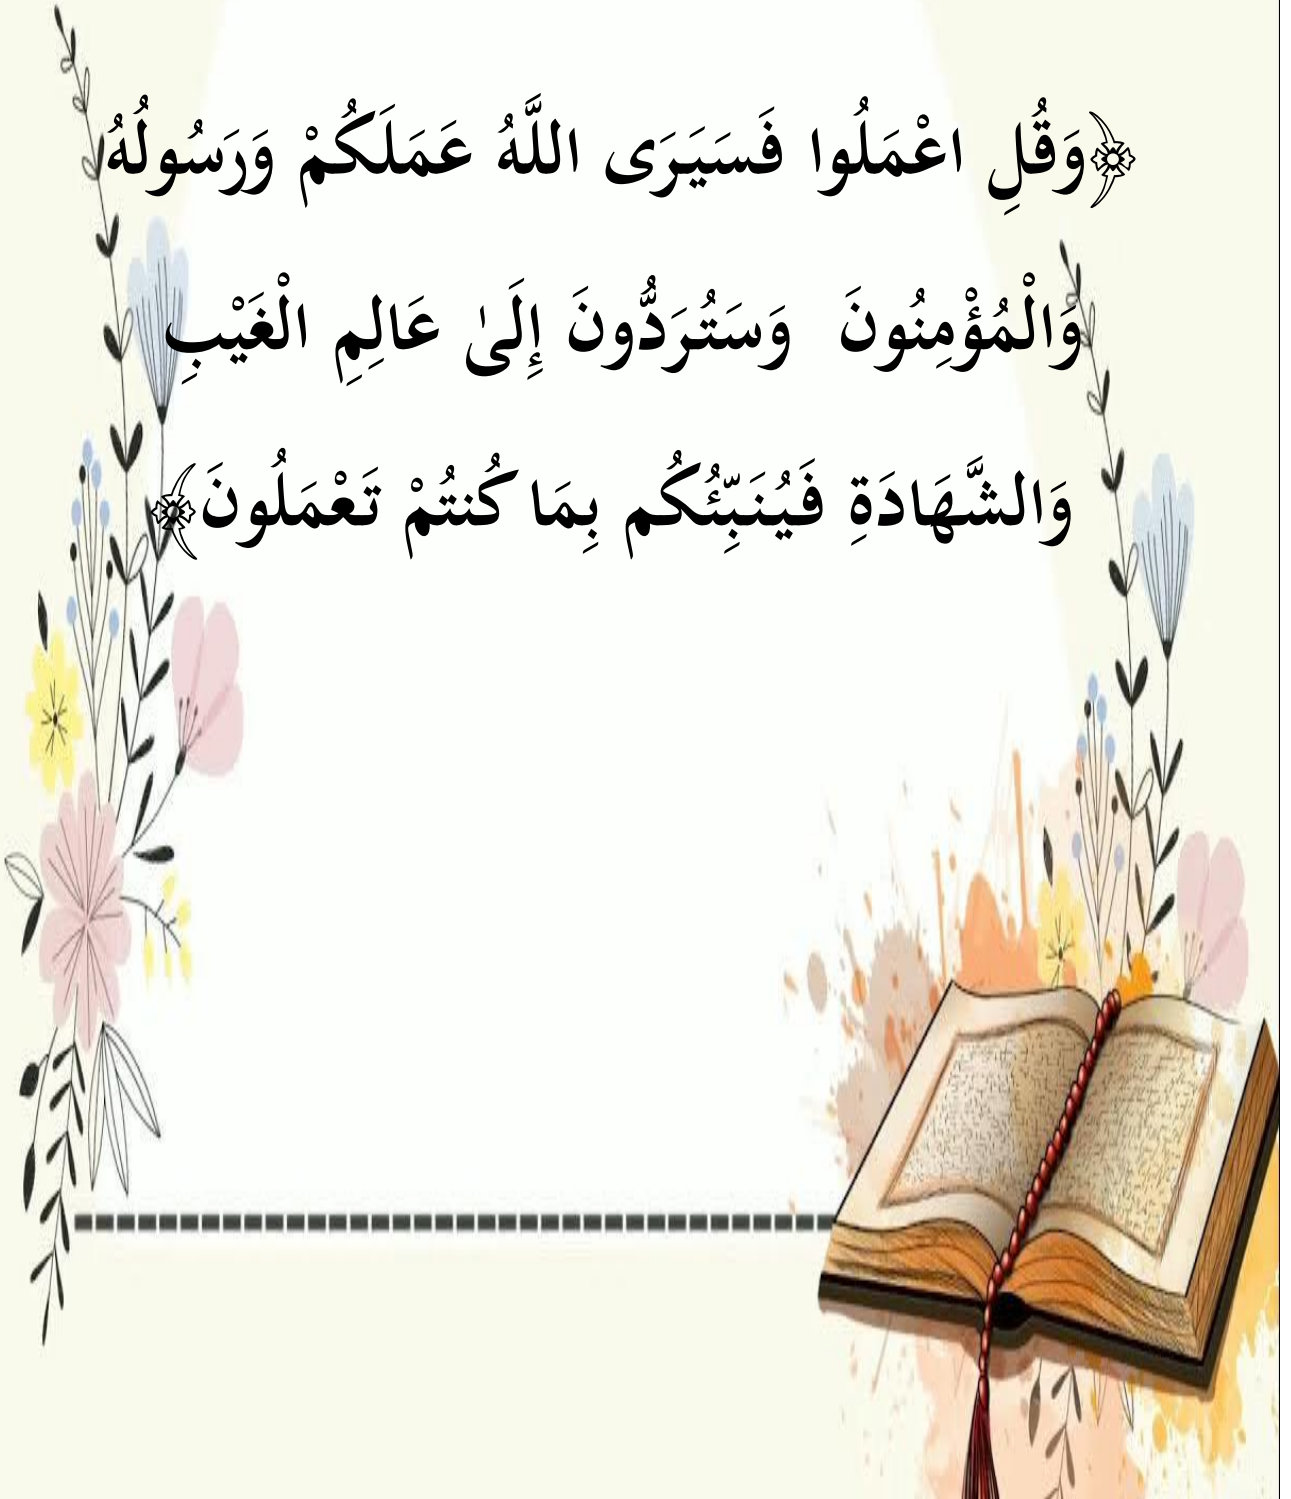 ﴿وَقُلِ اعْمَلُوا فَسَيَرَى اللَّهُ عَمَلَكُمْ وَرَسُولُهُ
وَالْمُؤْمِنُونَ وَسَتُرَدُّونَ إِلَىٰ عَالِمِ الْغَيْبِ
وَالشَّهَادَةِ فَيُنَبِّئُكُم بِمَا كُنتُمْ تَعْمَلُونَ﴾